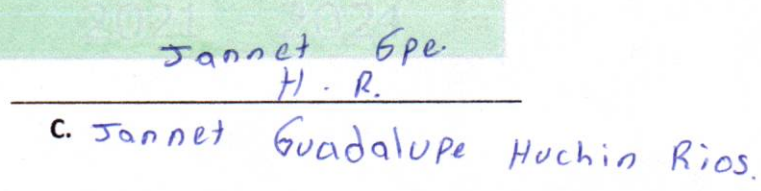 2021 - 2024
Jannet Gpe.
H. R.
C. Jannet Guadalupe Huchin Rios.